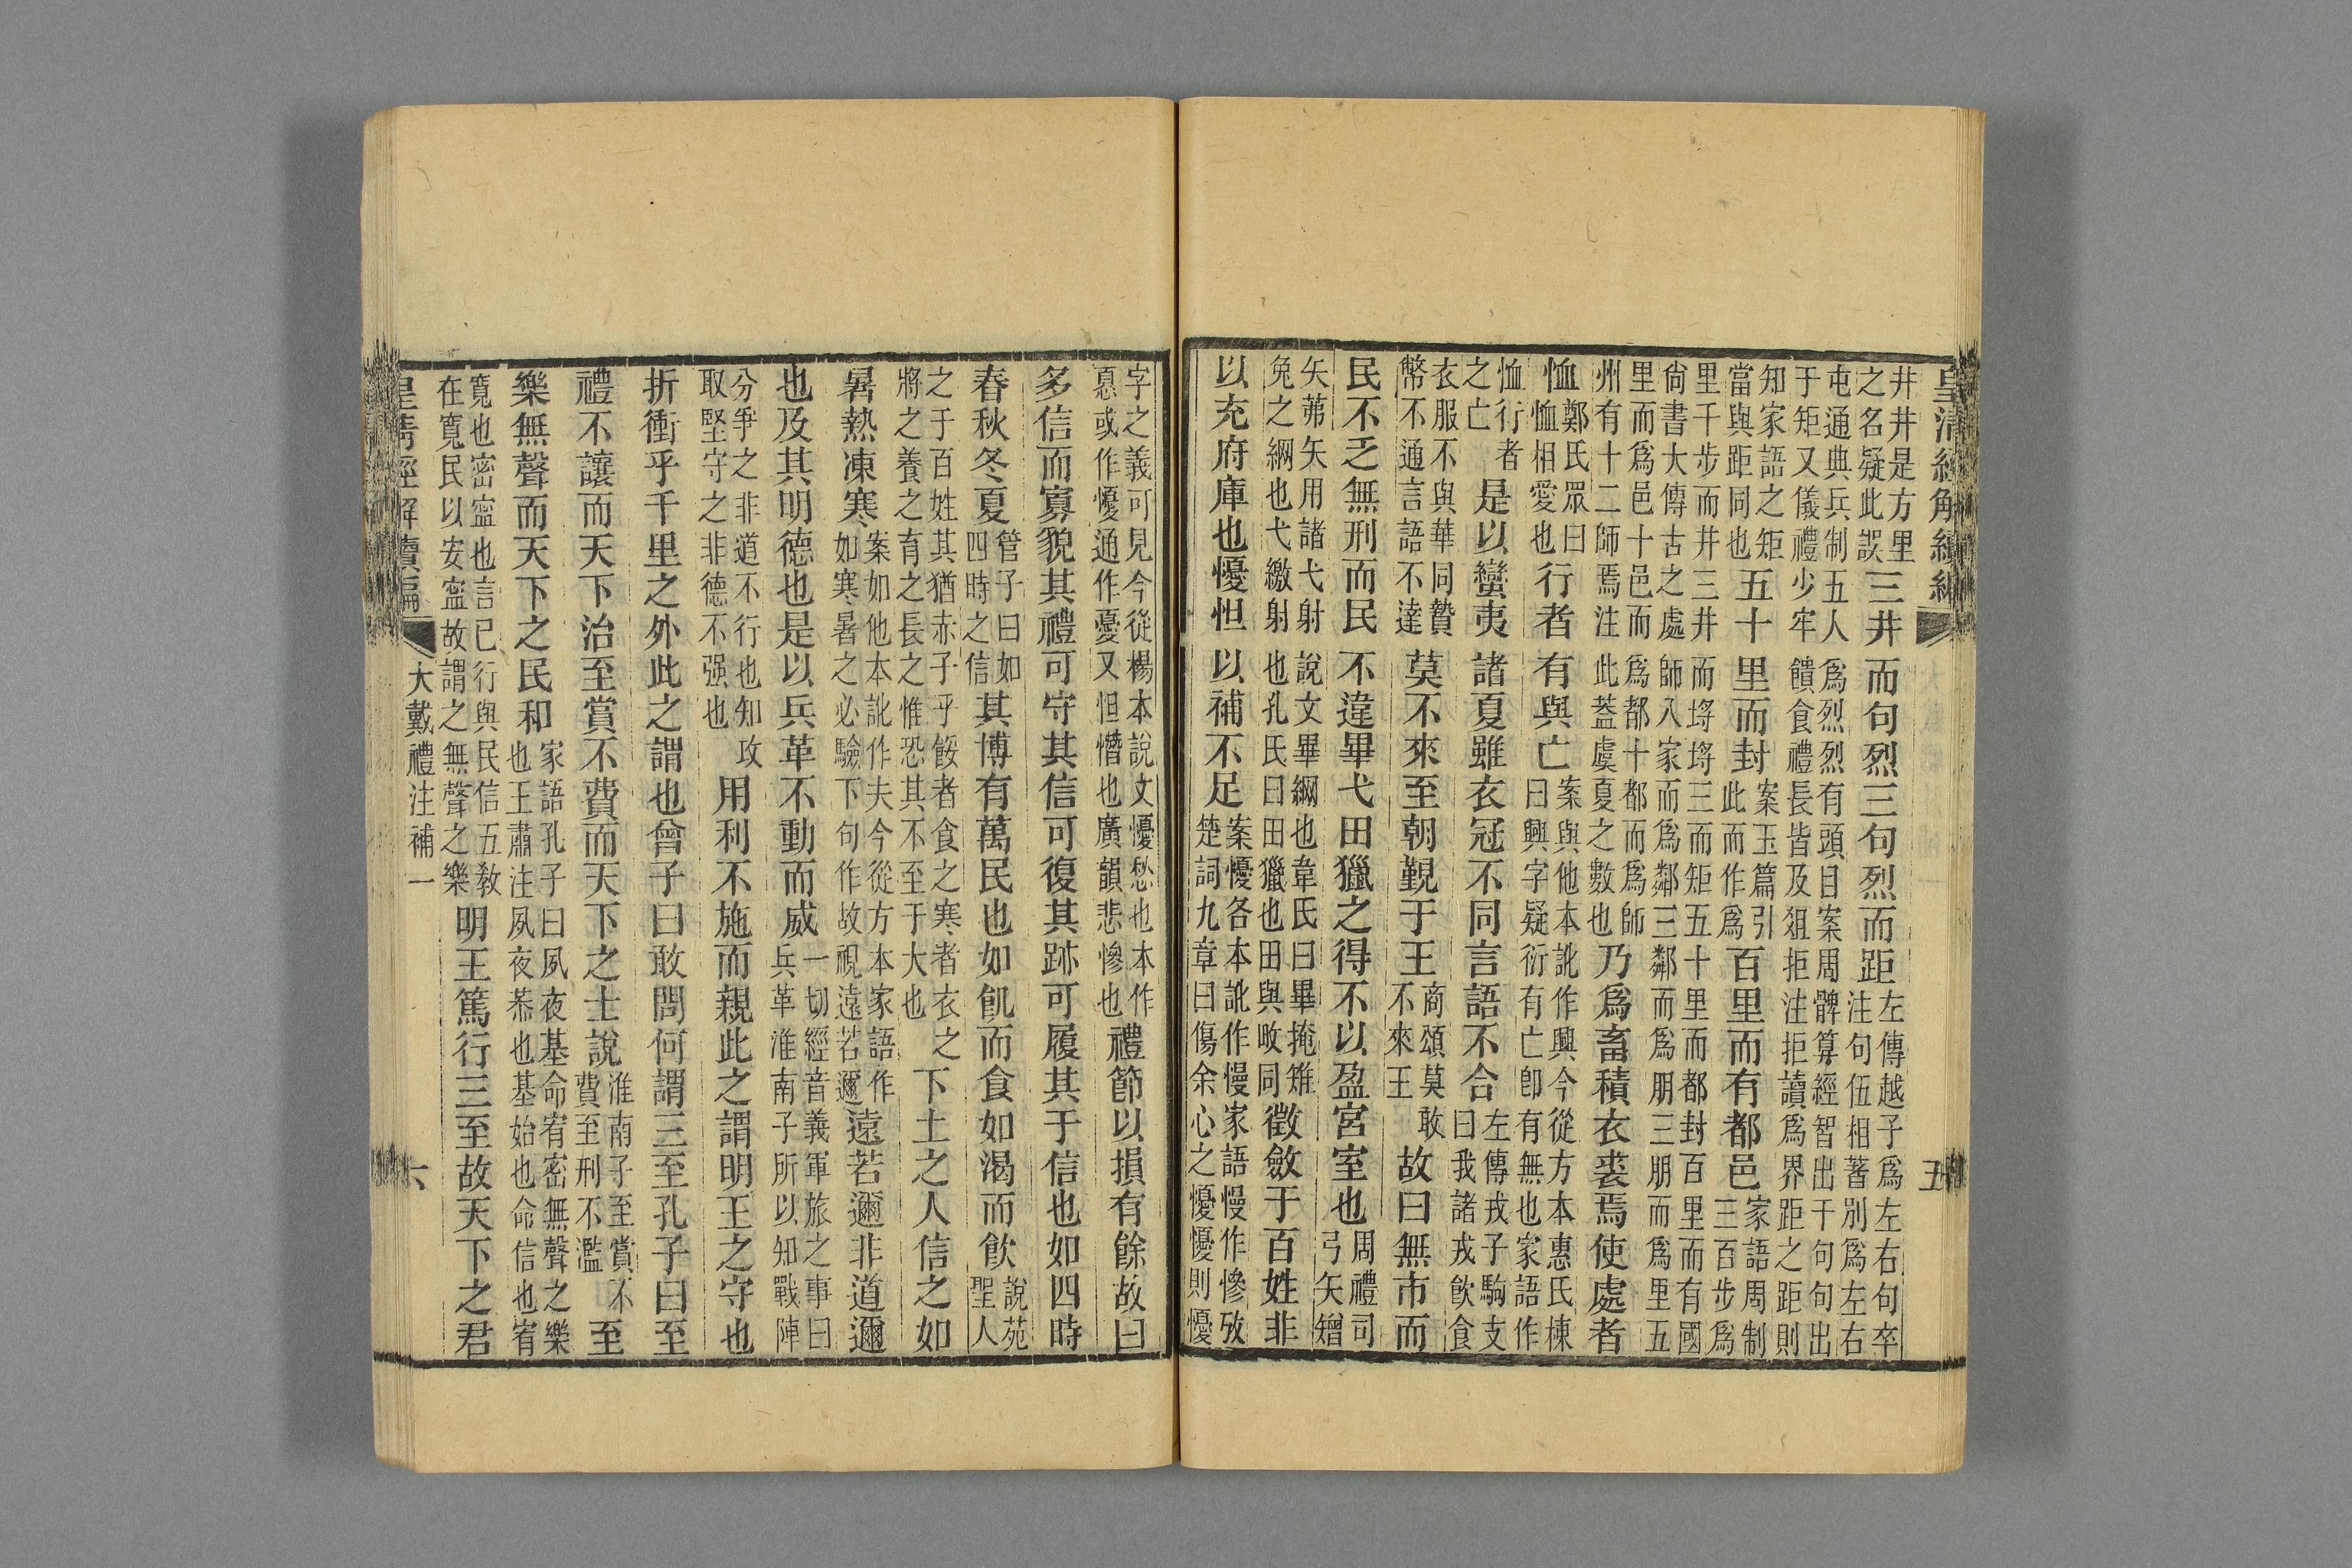 皇清經解續編 五
井井是方里之名疑此誤三井而句烈三句烈而距左傳越子為左右句卒注句伍相著別為左右
屯通典兵制五人為烈烈有頭目案周髀算經智出于句句出于矩又儀禮少牢饋食禮長皆及俎拒注拒讀為界距之距則
知家語之矩當與距同也五十里而封案玉篇引此而作為百里而有都邑家語周制三百步為
里千步而井三井而埒埒三而矩五十里而都封百里而有國尙書大傳古之處師八家而為鄰三鄰而為朋三朋而為里五
里而為邑十邑而為都十都而為師州有十二師焉注此蓋虞夏之數也乃為畜積衣裘焉使處者
恤鄭氏眾曰恤相愛也行者有與亡案與他本訛作興今從方本惠氏棟曰興字疑衍有亡卽有無也家語作
恤行者之亡是以蠻夷諸夏雖衣冠不同言語不合左傳戎子駒支曰我諸戎飮食
衣服不與華同贄幣不通言語不達莫不來至朝覲于王商頌莫敢不來王故曰無市而
民不乏無刑而民不違畢弋田獵之得不以盈宮室也周禮司弓矢矰
矢茀矢用諸弋射說文畢網也韋氏曰畢掩雉兔之網也弋繳射也孔氏曰田獵也田與畋同徵斂于百姓非
以充府庫也懮怛以補不足案懮各本訛作慢家語慢作慘攷楚詞九章曰傷余心之懮懮則懮
字之義可見今從楊本說文懮愁也本作惪或作懮通作憂又怛憯也廣韻悲慘也禮節以損有餘故曰
多信而寡貌其禮可守其信可復其跡可履其于信也如四時
春秋冬夏管子曰如四時之信其博有萬民也如飢而食如渴而飮說苑聖人
之于百姓其猶赤子乎餒者食之寒者衣之將之養之育之長之惟恐其不至于大也下土之人信之如
暑熱凍寒案如他本訛作夫今從方本家語作如寒暑之必驗下句作故視遠若邇遠若邇非道邇
也及其明德也是以兵革不動而威一切經音義軍旅之事曰兵革淮南子所以知戰陣
分爭之非道不行也知攻取堅守之非德不强也用利不施而親此之謂明王之守也
折衝乎千里之外此之謂也曾子曰敢問何謂三至孔子曰至
禮不讓而天下治至賞不費而天下之士說淮南子至賞不費至刑不濫至
樂無聲而天下之民和家語孔子曰夙夜基命宥密無聲之樂也王肅注夙夜恭也基始也命信也宥
寬也密寍也言己行與民信五敎在寬民以安寍故謂之無聲之樂明王篤行三至故天下之君
皇淸經解續編 大戴禮注補一 六